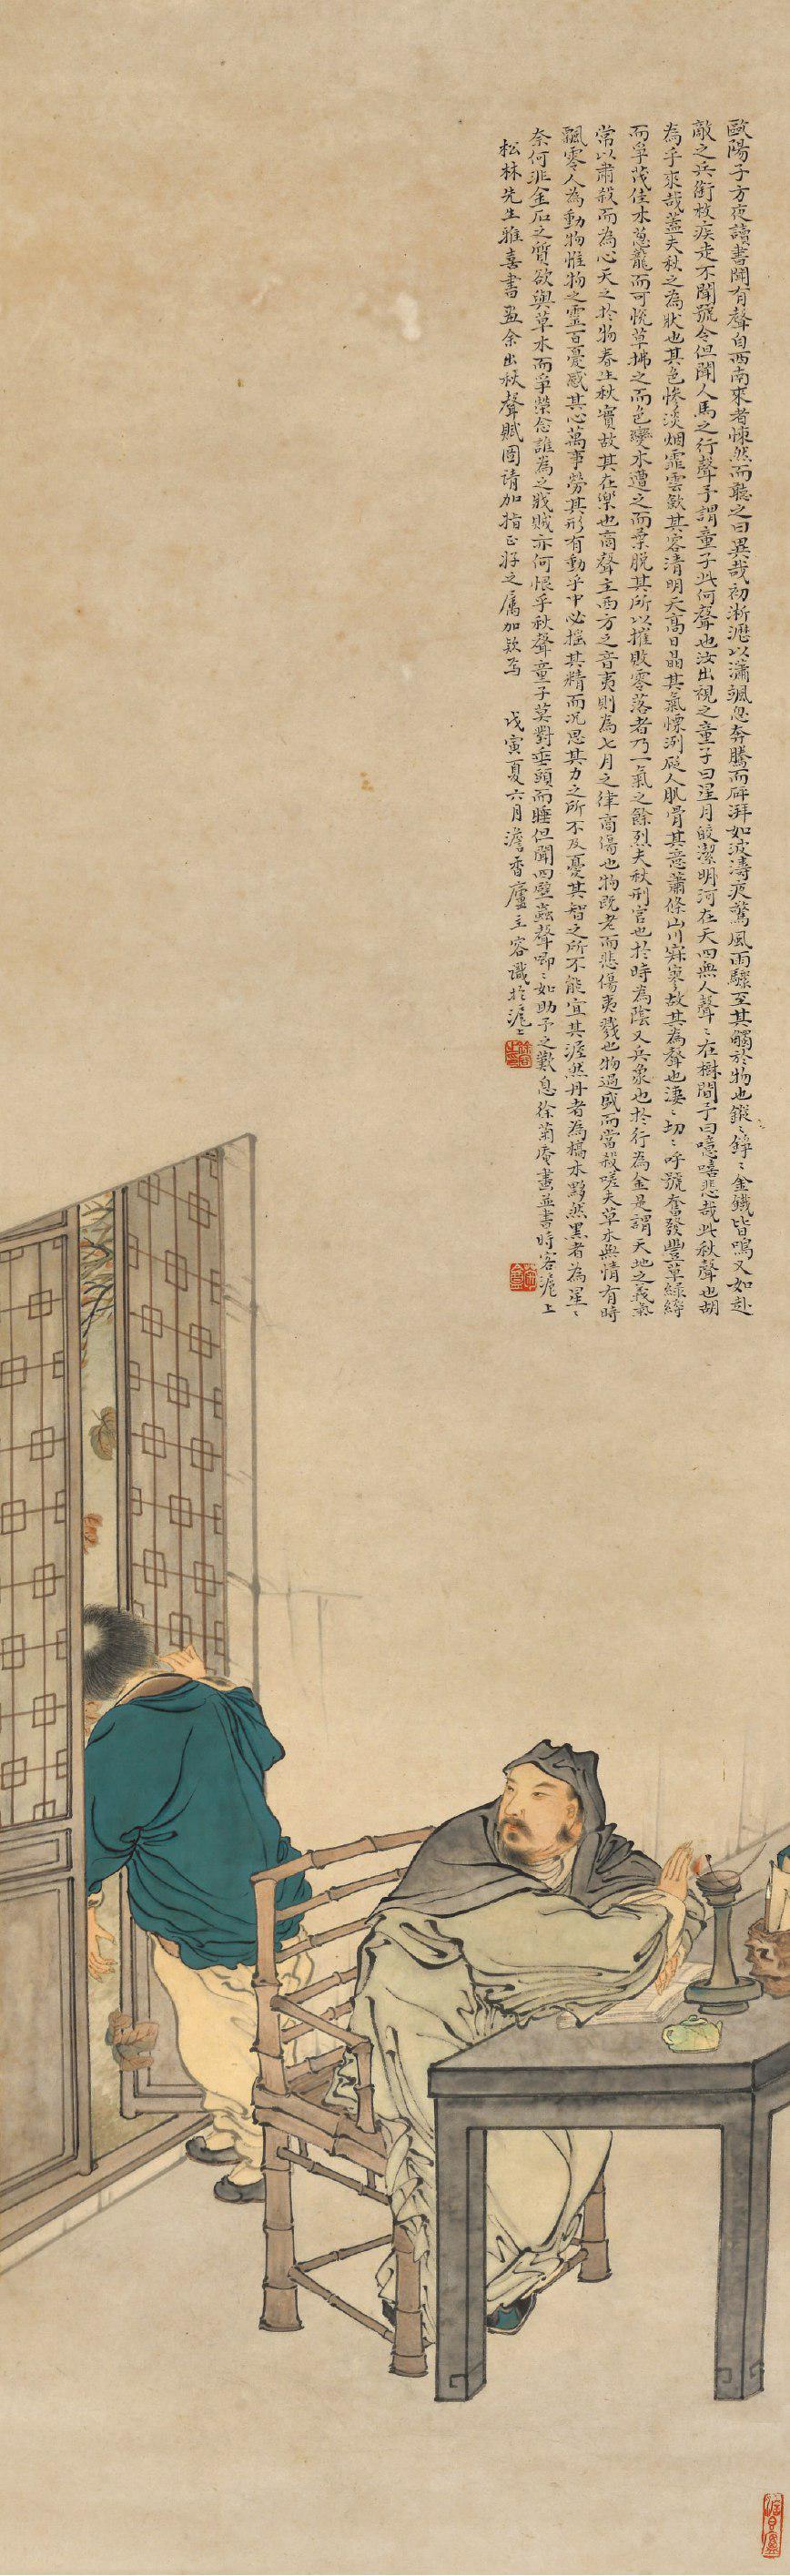 歐陽子方夜讀書聞有聲自西南來者悚然而聽之曰異哉初淅瀝以瀟颯忽奔騰而砰湃如波濤夜驚風雨驟至其觸於物也鏦〻錚〻金鐵皆鳴又如赴
敵之兵銜枚疾走不聞號令但聞人馬之行聲予謂童子此何聲也汝出視之童子曰星月皎潔明河在天四無人聲〻在樹間予曰噫嘻悲哉此秋聲也胡
為乎來哉蓋夫秋之為狀也其色慘淡烟霏雲歛其容清明天高日晶其氣慄洌砭人肌骨其意蕭條山川寂寥故其為聲也淒〻切〻呼號奮發豐草綠縟
而爭茂佳木蔥蘢而可悅草拂之而色變木遭之而葉脫其所以摧敗零落者乃一氣之餘烈夫秋刑官也於時為陰又兵象也於行為金是謂天地之義氣
常以肅殺而為心天之於物春生秋實故其在樂也商聲主西方之音夷則為七月之律商傷也物既老而悲傷夷戮也物過盛而當殺嗟夫草木無情有時
飄零人為動物惟物之靈百憂感其心萬事勞其形有動乎中必搖其精而況思其力之所不及憂其智之所不能宜其渥然丹者為槁木黟然黑者為星〻
奈何非金石之質欲與草木而爭榮念誰為之戕賊亦何恨乎秋聲童子莫對垂頭而睡但聞四壁蟲聲唧〻如助予之歎息徐菊庵畫並書時客滬上
松林先生雅喜書畫余出秋聲賦圖请加指正好之屬加欵為 戊寅夏六月澹香廬主容識於滬上